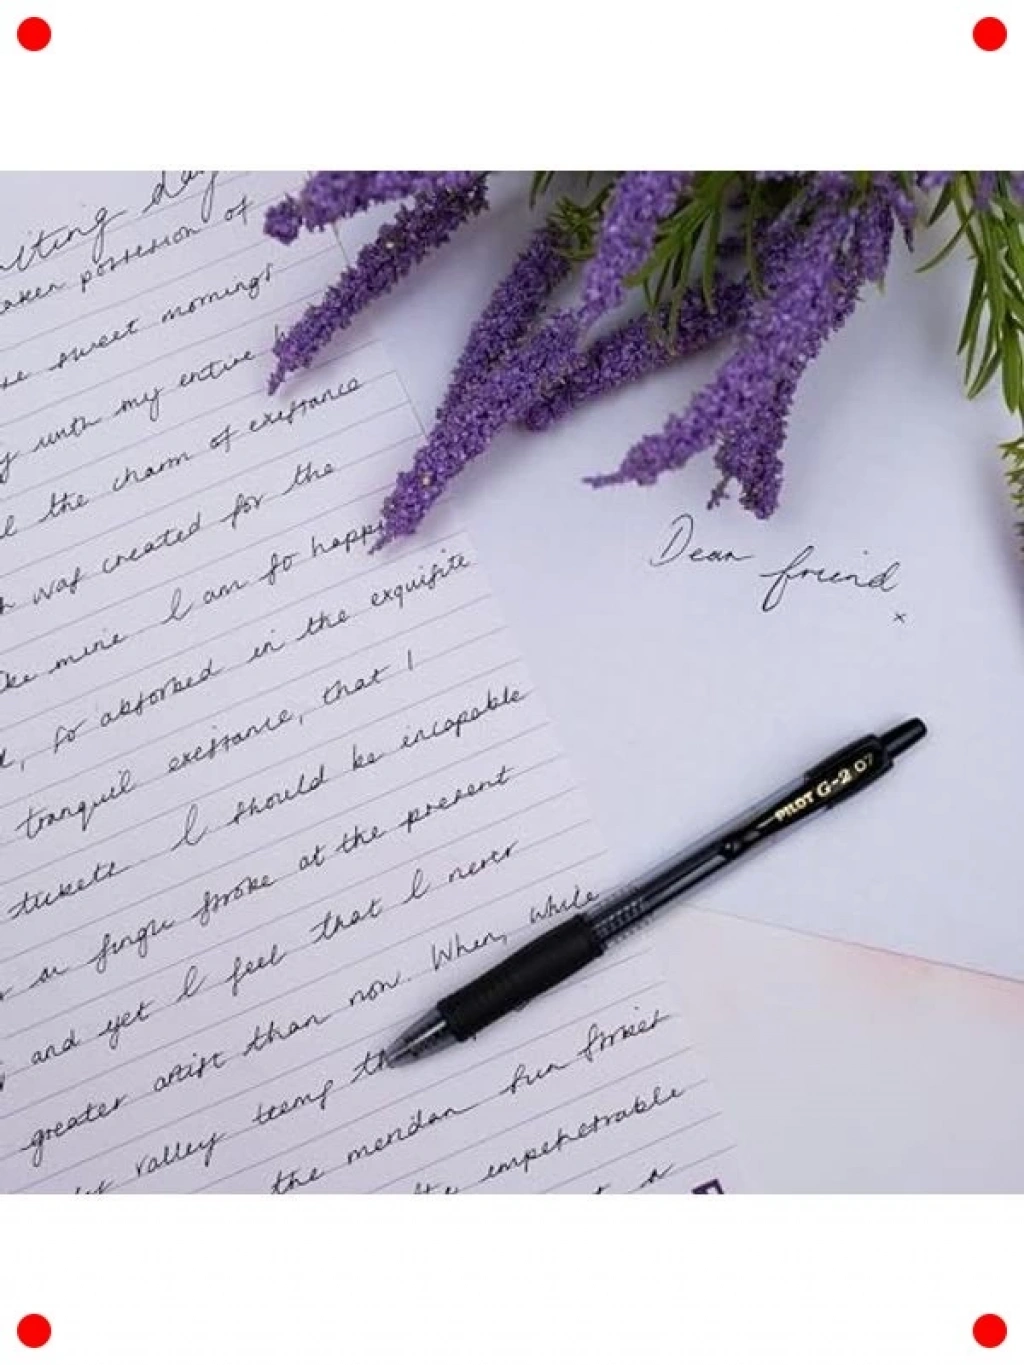 day
taken possession of
sweet mornings
with my entire
the charm of existance
was created for the
mine. I am so happy
so absorbed in the exquisite
tranquil existance, that I
I should be incapable
stroke at the present
and yet I feel that I never
greater artist than now. When, while
valley teems
the meridan sun strikes
impenetrable
a
Dear friend
x
PILOT G-2 07